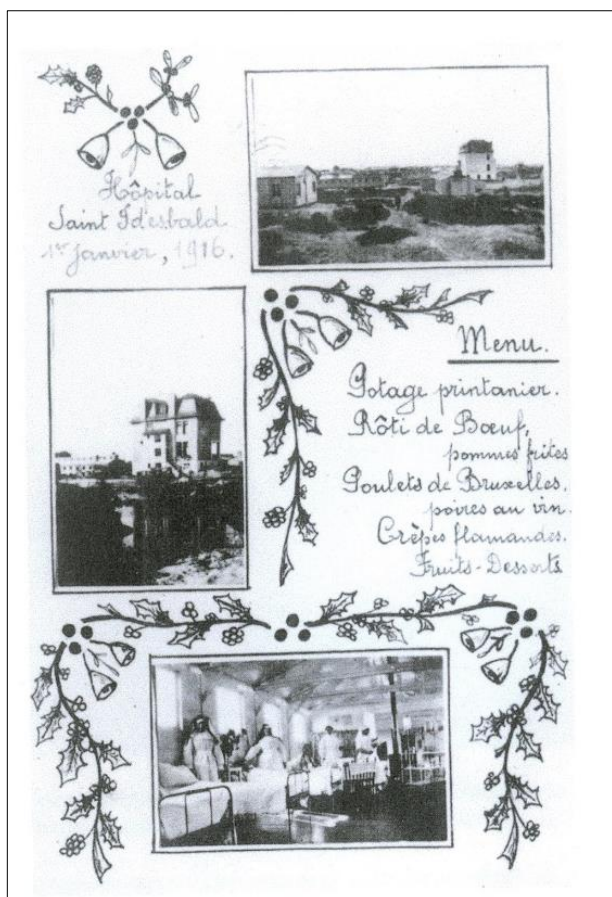 Hôpital
Saint Idesbald
1er Janvier, 1916.
Menu.
Potage printanier.
Rôti de Bœuf,
pommes frites
Poulets de Bruxelles.
poires au vin.
Crêpes flamandes.
Fruits-Desserts